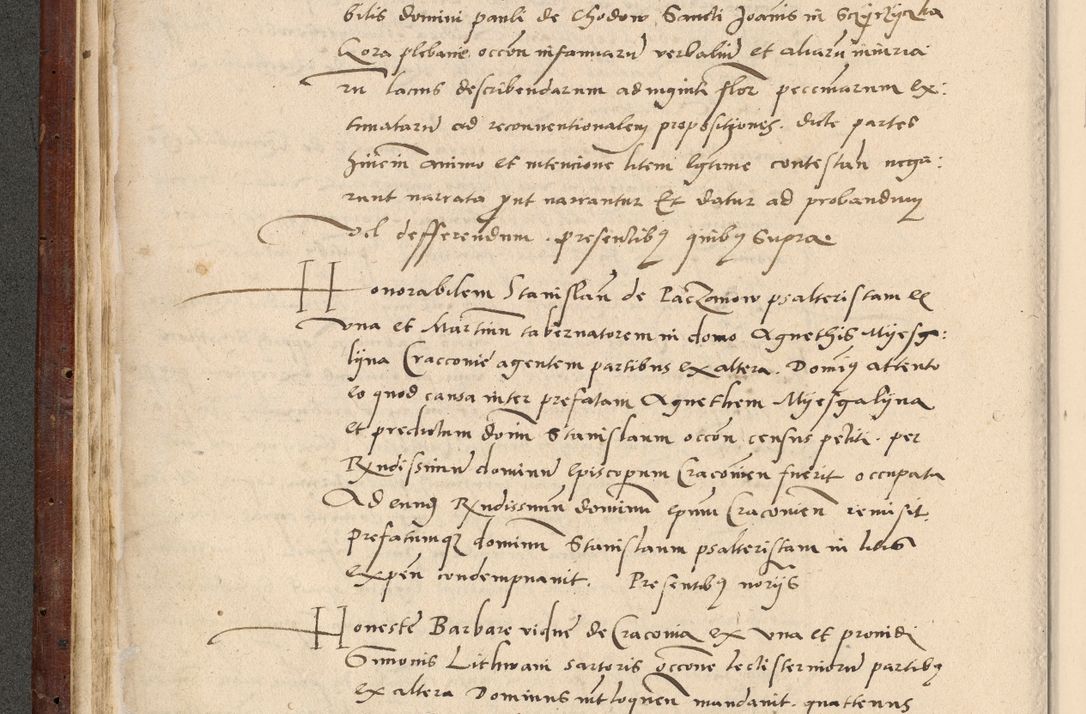 bilis domini pauli de Chodow Sancti Joanis in Sczyrzycka
Gora plebane occon infamiaru verbaliu et aliaru iniuria
ru lacius describendarum ad viginti flor peccuniarum ex:
timataru ad reconventionalem propositiones. dicte partes
hincin animo et intencione litem lgtime contestan nega:
runt narrata put narrantur Et datur ad probandum
vel defferendum. presentibq quibq Supra
Honorabilem Stanislau de Paczanow psalteristam ex
una et Martinu tabernatorem in domo Agnethis Myesg:
lyna Cracconie agentem partibus ex altera. Dominq attento
eo quod causa inter prefatam Agnethem Myesgalyna
et predictum domi Stanislaum occon census petiti. per
Rxndissimu dominu episcopum Cracovien fuerit occupata
Ad eundq Rxndissimu dominu epum Cracovien remisit.
prefatumqz dominu Stanislaum psalteristam in litis
expen condempnavit. Presentibq noriis
Honeste Barbare vidue de Cracovia ex una et providi
Simonis Lithwani sartoris occone lectisternioru partibq
ex altera Dominus intloquen mandavit. quattenus